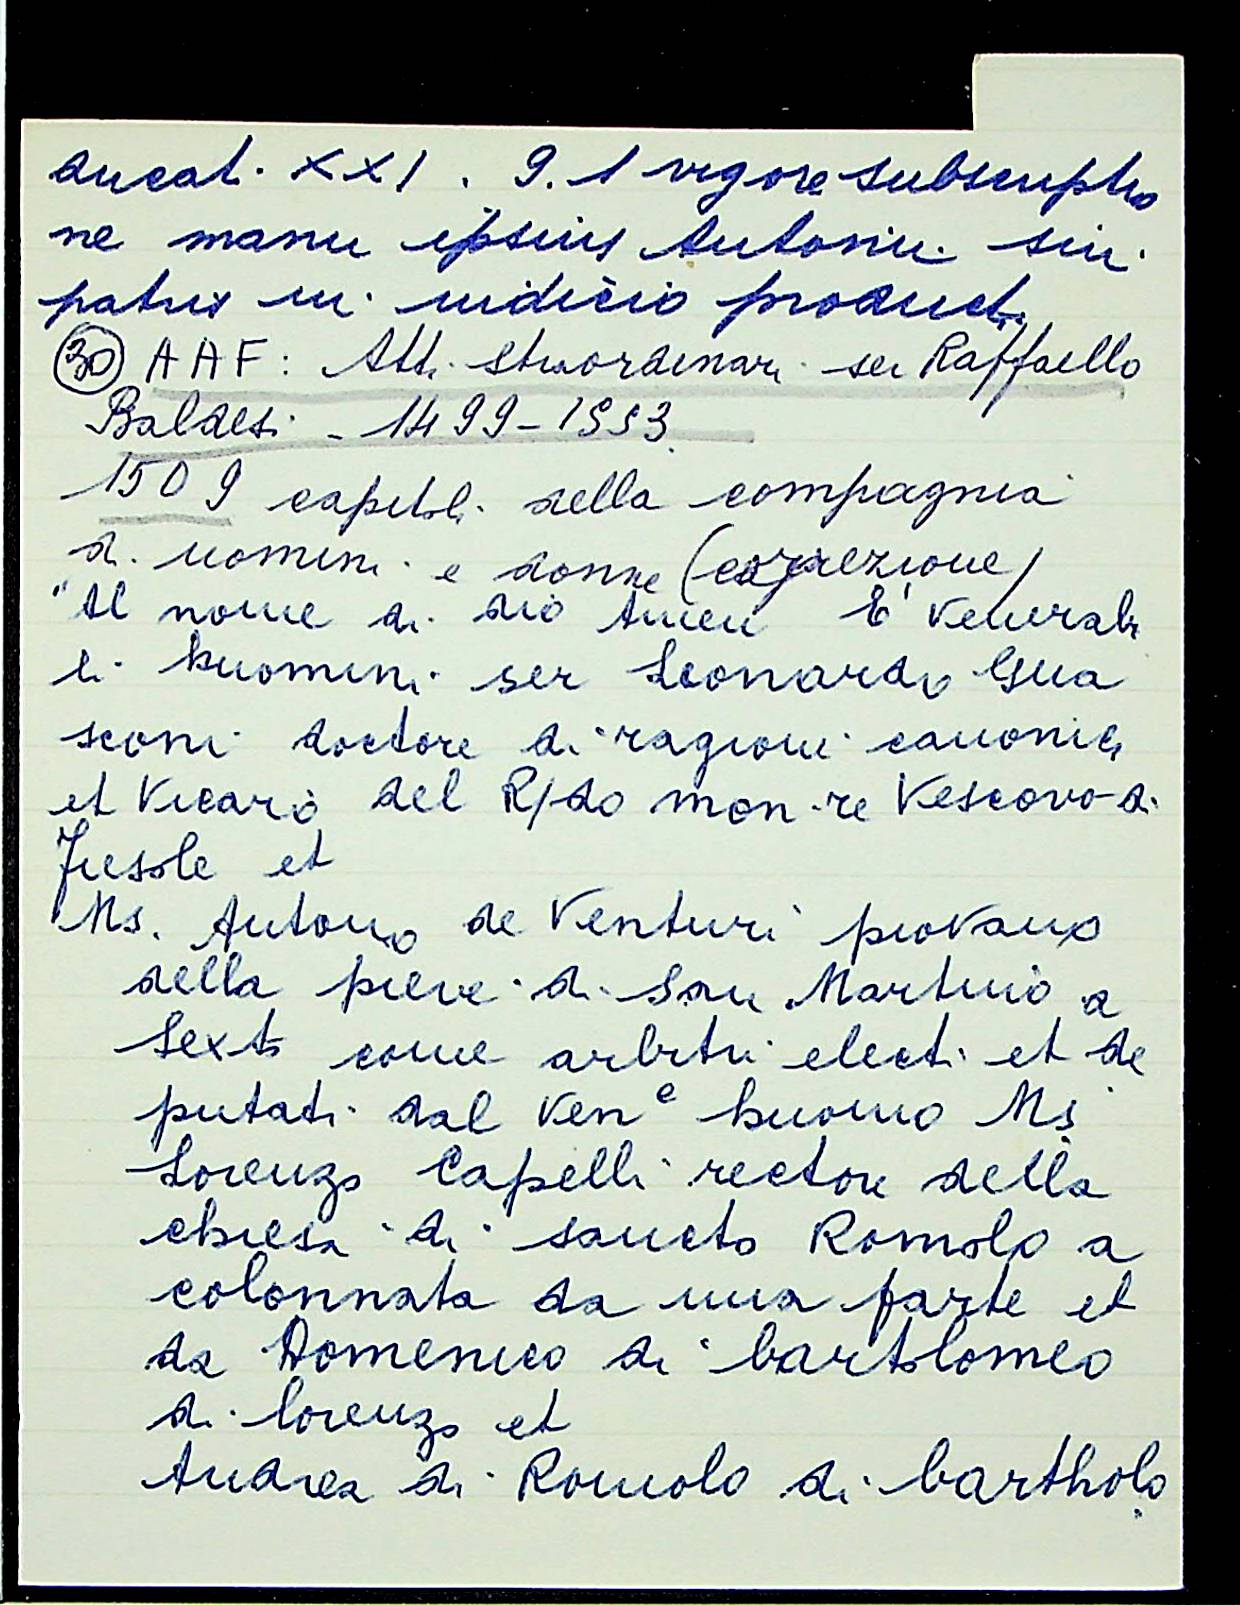 ducat. XXI. 9. 1 vigore subscriptio
ne manu ipsius Antonii sui
patris in iudicio product.
30 AAF: Atti straordinari ser Raffaello
Baldesi - 1499-1553
1509 capitoli della compagnia
di uomini e donne (correzione)
"Al nome di dio Amen E' venerabi
li huomini ser Leonardo Gua
sconi doctore di ragioni canonica
et Vicario del R/do mon-re Vescovo di
Fiesole et
Ms. Antonio de Venturi piovano
della pieve di San Martino a
Sexto come arbitri electi et de
putati dal Ven e huomo Ms
Lorenzo Capelli rectore della
chiesa di sancto Romolo a
colonnata da una parte et
da Domenico di bartolomeo
di lorenzo et
Andrea di Romolo di bartholo